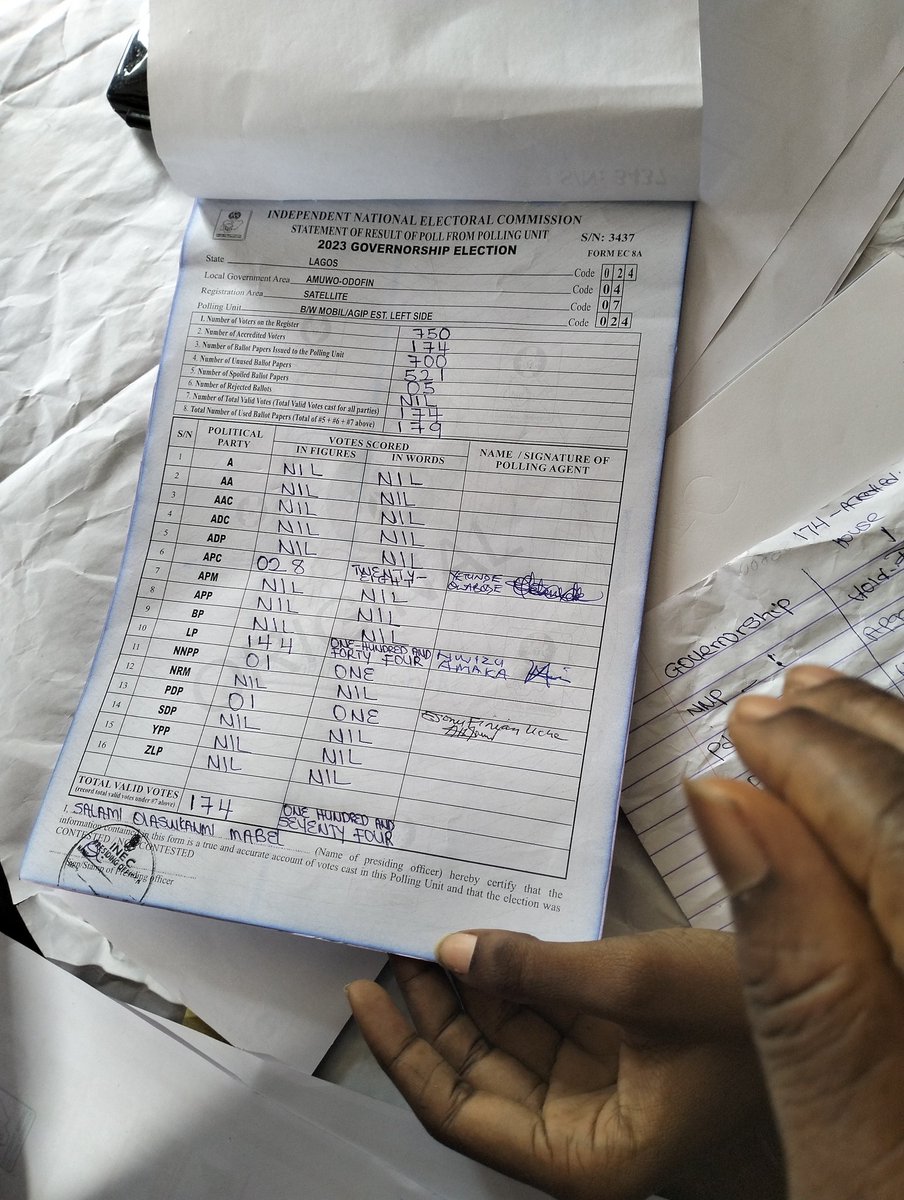 S/N: 3437
INDEPENDENT NATIONAL ELECTORAL COMMISSION
STATEMENT OF RESULT OF POLL FROM POLLING UNIT
2023 GOVERNORSHIP ELECTION
S/N: 3437
FORM EC 8A
State LAGOS Code 0 2 4
Local Government Area AMUWO-ODOFIN Code 0 4
Registration Area SATELLITE Code 0 7
Polling Unit B/W MOBIL/AGIP EST. LEFT SIDE Code 0 2 4
1. Number of Voters on the Register 750
2. Number of Accredited Voters 174
3. Number of Ballot Papers Issued to the Polling Unit 700
4. Number of Unused Ballot Papers 521
5. Number of Spoiled Ballot Papers 05
6. Number of Rejected Ballots NIL
7. Number of Total Valid Votes (Total Valid Votes cast for all parties) 174
8. Total Number of Used Ballot Papers (Total of #5 + #6 + #7 above) 179
S/N POLITICAL PARTY VOTES SCORED NAME / SIGNATURE OF POLLING AGENT
IN FIGURES IN WORDS
1 A NIL NIL
2 AA NIL NIL
3 AAC NIL NIL
4 ADC NIL NIL
5 ADP NIL NIL
6 APC 028 TWENTY-EIGHT YETUNDE
7 APM NIL NIL
8 APP NIL NIL
9 BP NIL NIL
10 LP 144 ONE-HUNDRED AND FORTY FOUR NWIZU AMAKA
11 NNPP 01 ONE
12 NRM NIL NIL
13 PDP 01 ONE
14 SDP NIL NIL
15 YPP NIL NIL
16 ZLP NIL NIL
TOTAL VALID VOTES 174 ONE HUNDRED AND SEVENTY FOUR
(record total valid votes under #7 above)
I, SALAMI OLASUKANMI MABEL (Name of presiding officer) hereby certify that the
information contained in this form is a true and accurate account of votes cast in this Polling Unit and that the election was
CONTESTED CONTESTED
INEC
PRESIDING OFFICER
Sign/Stamp of Presiding officer
174 - Accredited
House
Governorship
NNP